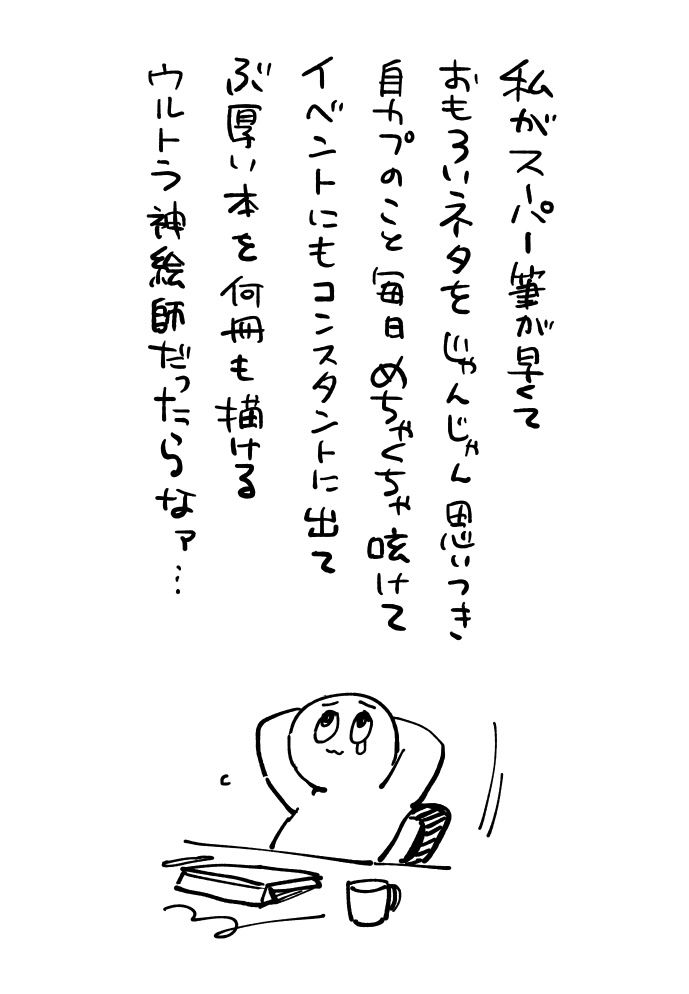 私がスーパー筆が早くて
おもろいネタをじゃんじゃん思いつき
自カプのこと毎日めちゃくちゃ呟けて
イベントにもコンスタントに出て
ぶ厚い本を何冊も描ける
ウルトラ神絵師だったらなァ…